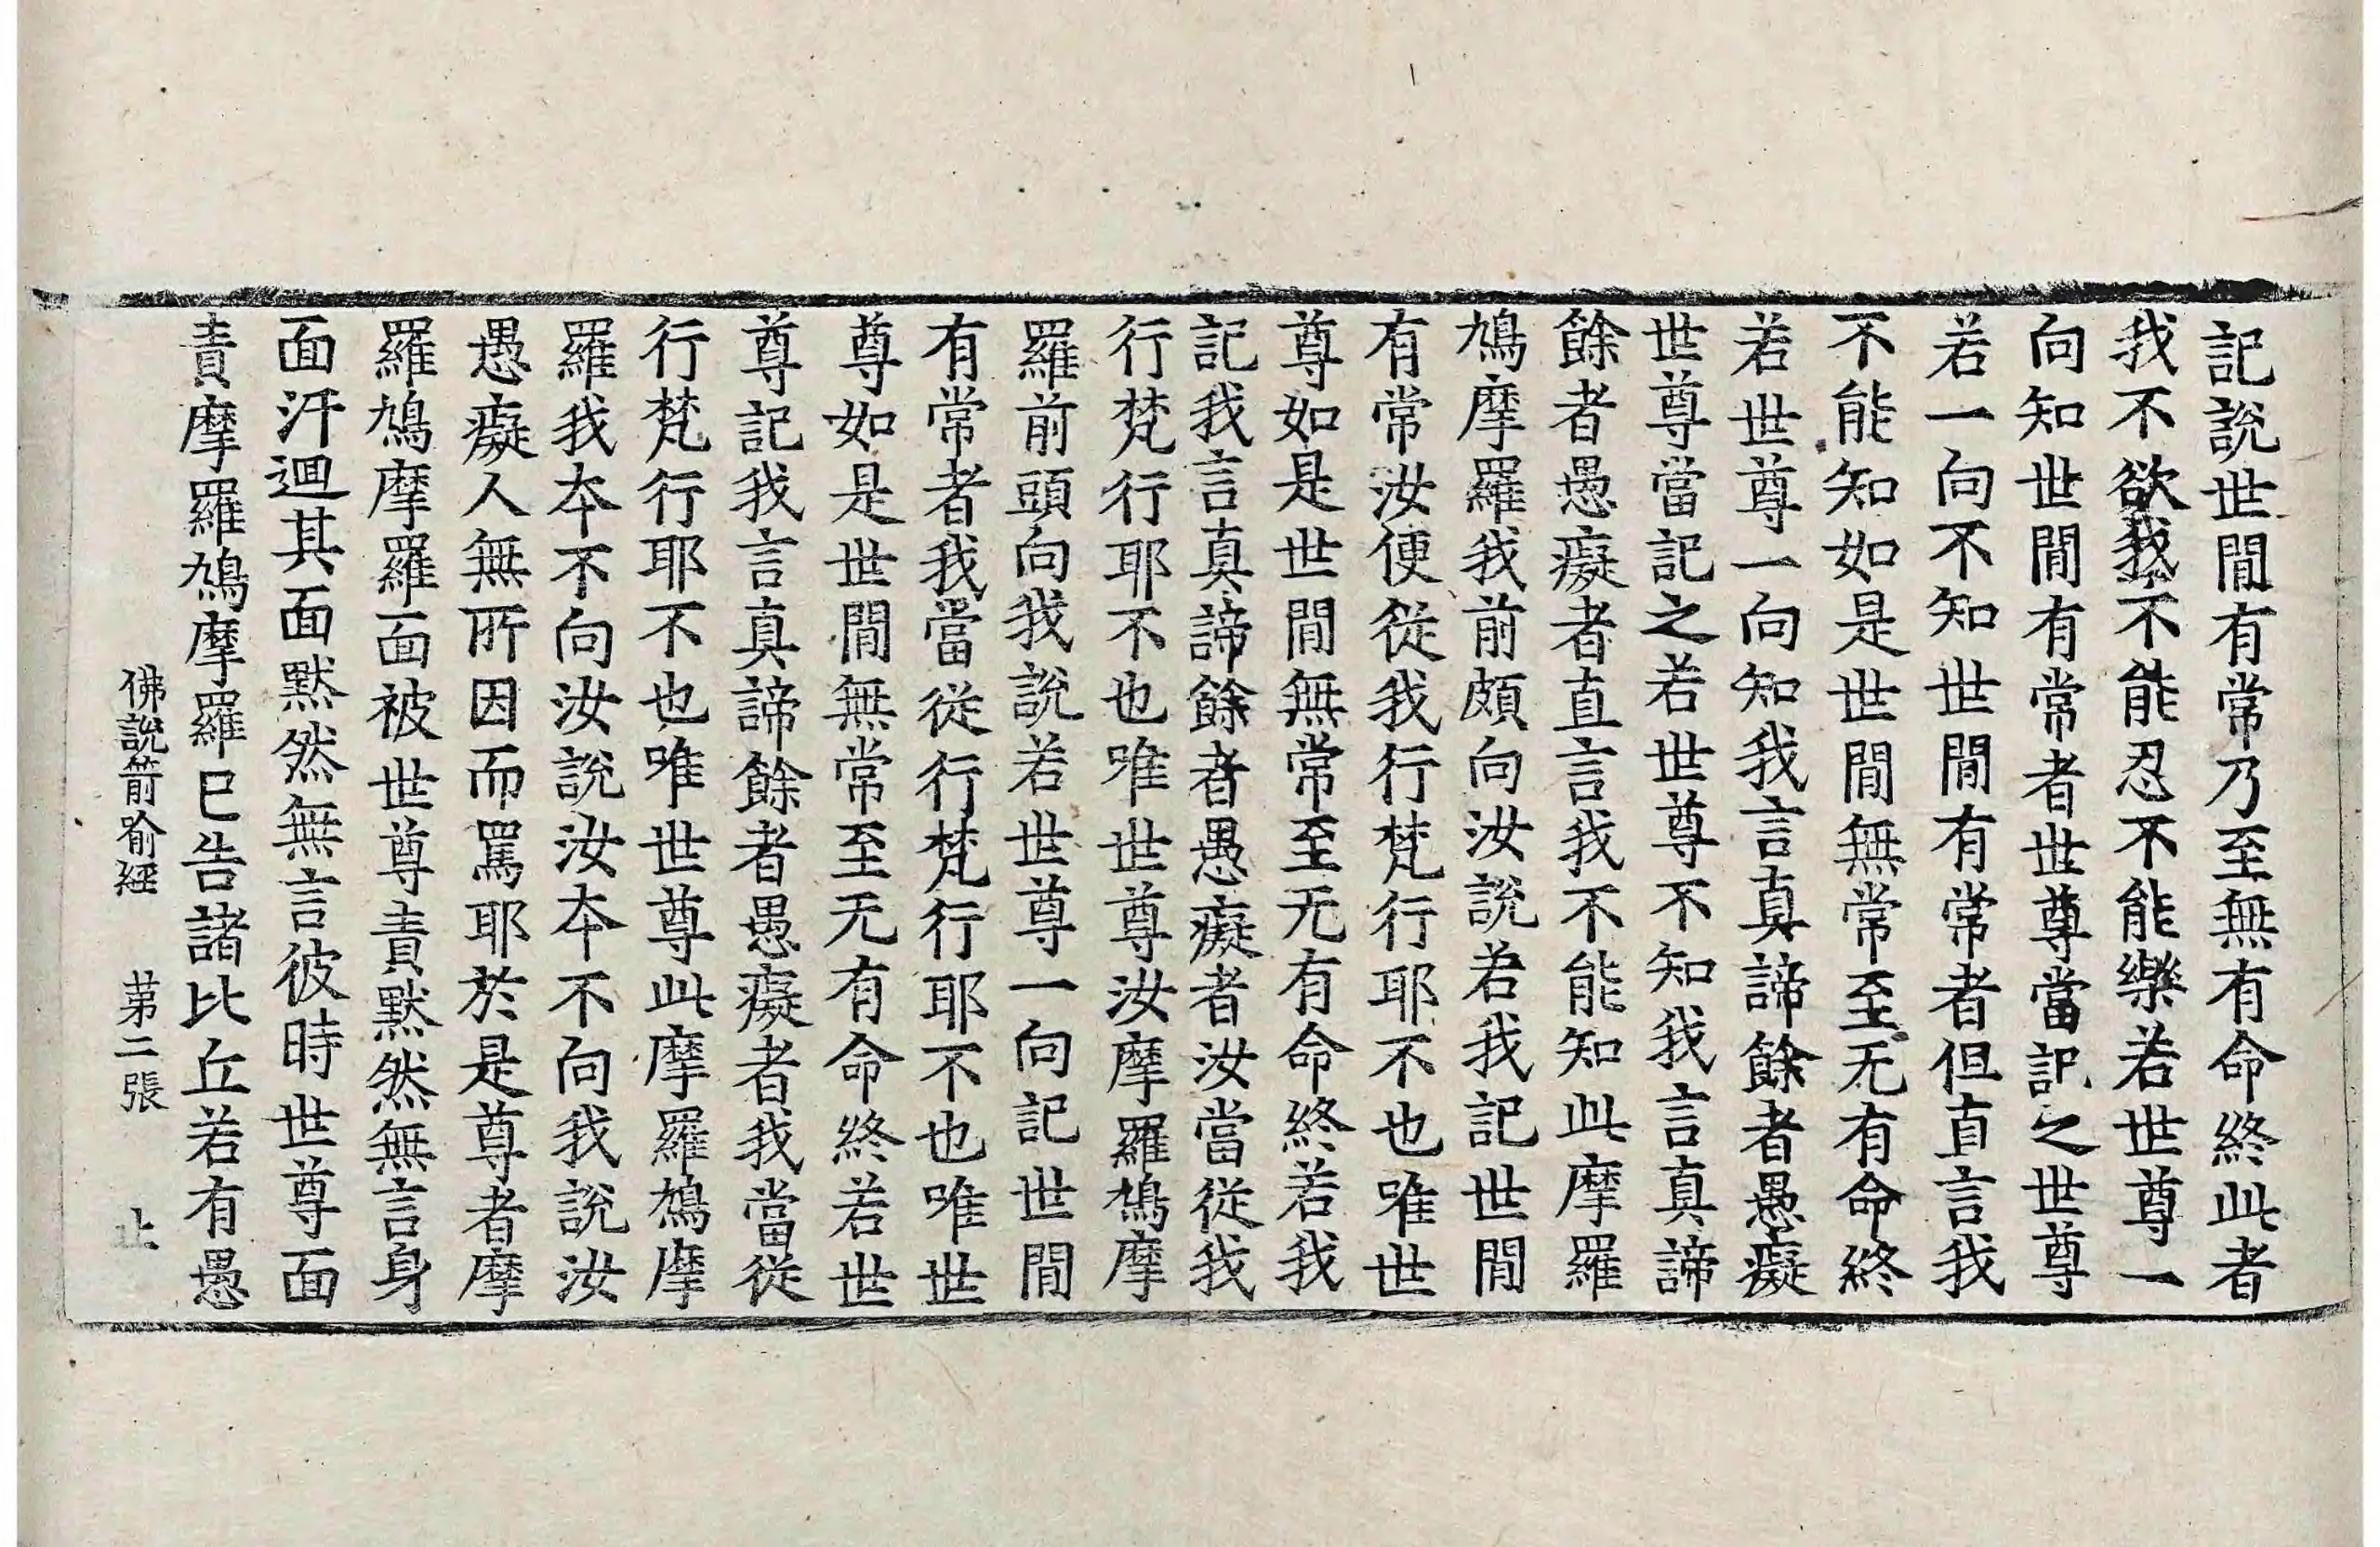 記說世間有常乃至無有命終此者
我不欲我不能忍不能樂若世尊一
向知世間有常者世尊當記之世尊
若一向不知世間有常者但直言我
不能知如是世間無常至无有命終
若世尊一向知我言真諦餘者愚癡
世尊當記之若世尊不知我言真諦
餘者愚癡者直言我不能知此摩羅
鳩摩羅我前頗向汝說若我記世間
有常汝便從我行梵行耶不也唯世
尊如是世間無常至无有命終若我
記我言真諦餘者愚癡者汝當從我
行梵行耶不也唯世尊汝摩羅鳩摩
羅前頭向我說若世尊一向記世間
有常者我當從行梵行耶不也唯世
尊如是世間無常至无有命終若世
尊記我言真諦餘者愚癡者我當從
行梵行耶不也唯世尊此摩羅鳩摩
羅我本不向汝說汝本不向我說汝
愚癡人無所因而罵耶於是尊者摩
羅鳩摩羅面被世尊責默然無言身
面汗迴其面默然無言彼時世尊面
責摩羅鳩摩羅已告諸比丘若有愚
佛說箭喻經 苐二張 止